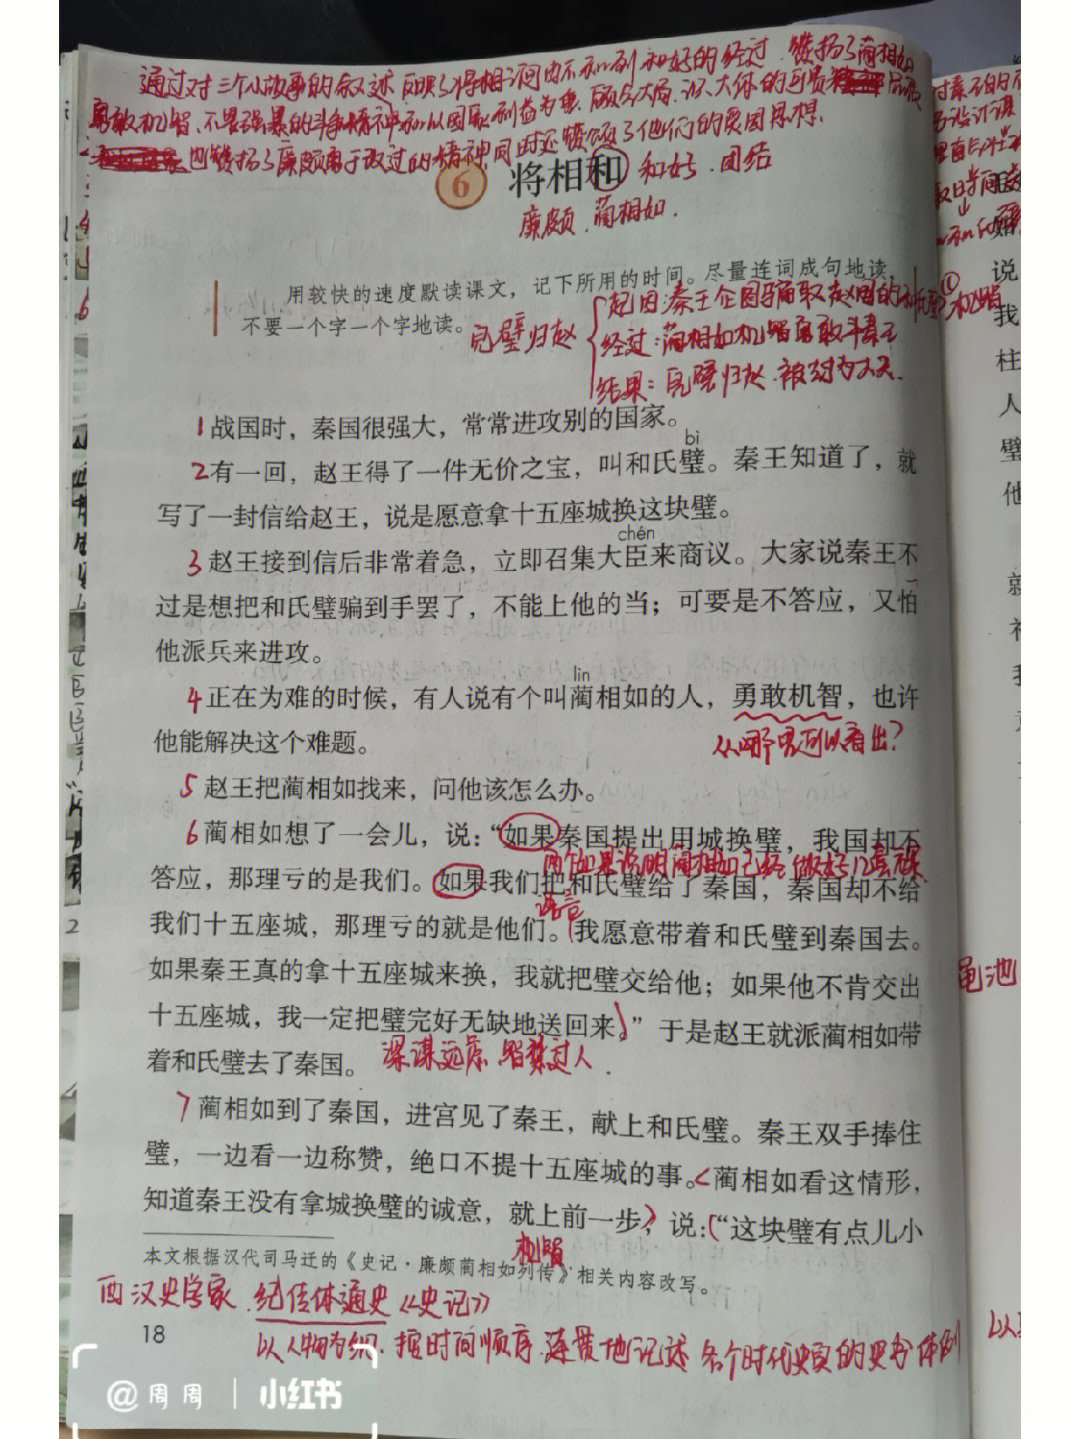 通过对三个小故事的叙述,反映了将相之间由不和到和好的经过,赞扬了蔺相如
勇敢机智、不畏强暴的斗争精神和以国家利益为重、顾全大局、识大体的可贵品质
也赞扬了廉颇勇于改过的精神同时还赞颂了他们的爱国思想.
6 将相和 和好、团结
廉颇、蔺相如.
用较快的速度默读课文,记下所用的时间。尽量连词成句地读,
不要一个字一个字地读。
完璧归赵
起因:秦王企图骗取赵国的和氏璧
①机智
经过:蔺相如机智勇敢斗秦王
结果:完璧归赵、被封为大夫.
1 战国时,秦国很强大,常常进攻别的国家。
bì
2 有一回,赵王得了一件无价之宝,叫和氏璧。秦王知道了,就
写了一封信给赵王,说是愿意拿十五座城换这块璧。
chén
3 赵王接到信后非常着急,立即召集大臣来商议。大家说秦王不
过是想把和氏璧骗到手罢了,不能上他的当;可要是不答应,又怕
他派兵来进攻。
lìn
4 正在为难的时候,有人说有个叫蔺相如的人,勇敢机智,也许
他能解决这个难题。
从哪里可以看出?
5 赵王把蔺相如找来,问他该怎么办。
6 蔺相如想了一会儿,说:“如果秦国提出用城换璧,我国却不
两个如果说明蔺相如已经做好了
答应,那理亏的是我们。如果我们把和氏璧给了秦国,秦国却不给
语言
我们十五座城,那理亏的就是他们。我愿意带着和氏璧到秦国去。
如果秦王真的拿十五座城来换,我就把璧交给他;如果他不肯交出
十五座城,我一定把璧完好无缺地送回来。”于是赵王就派蔺相如带
着和氏璧去了秦国。
深谋远虑 智慧过人.
7 蔺相如到了秦国,进宫见了秦王,献上和氏璧。秦王双手捧住
璧,一边看一边称赞,绝口不提十五座城的事。蔺相如看这情形,
知道秦王没有拿城换璧的诚意,就上前一步,说:“这块璧有点儿小
机智
本文根据汉代司马迁的《史记·廉颇蔺相如列传》相关内容改写。
西汉史学家 纪传体通史《史记》
18
以人物为纲、按时间顺序、连贯地记述各个时代史实的史书体例
渑池
说
我
柱
人
璧
他
就
@周周 | 小红书